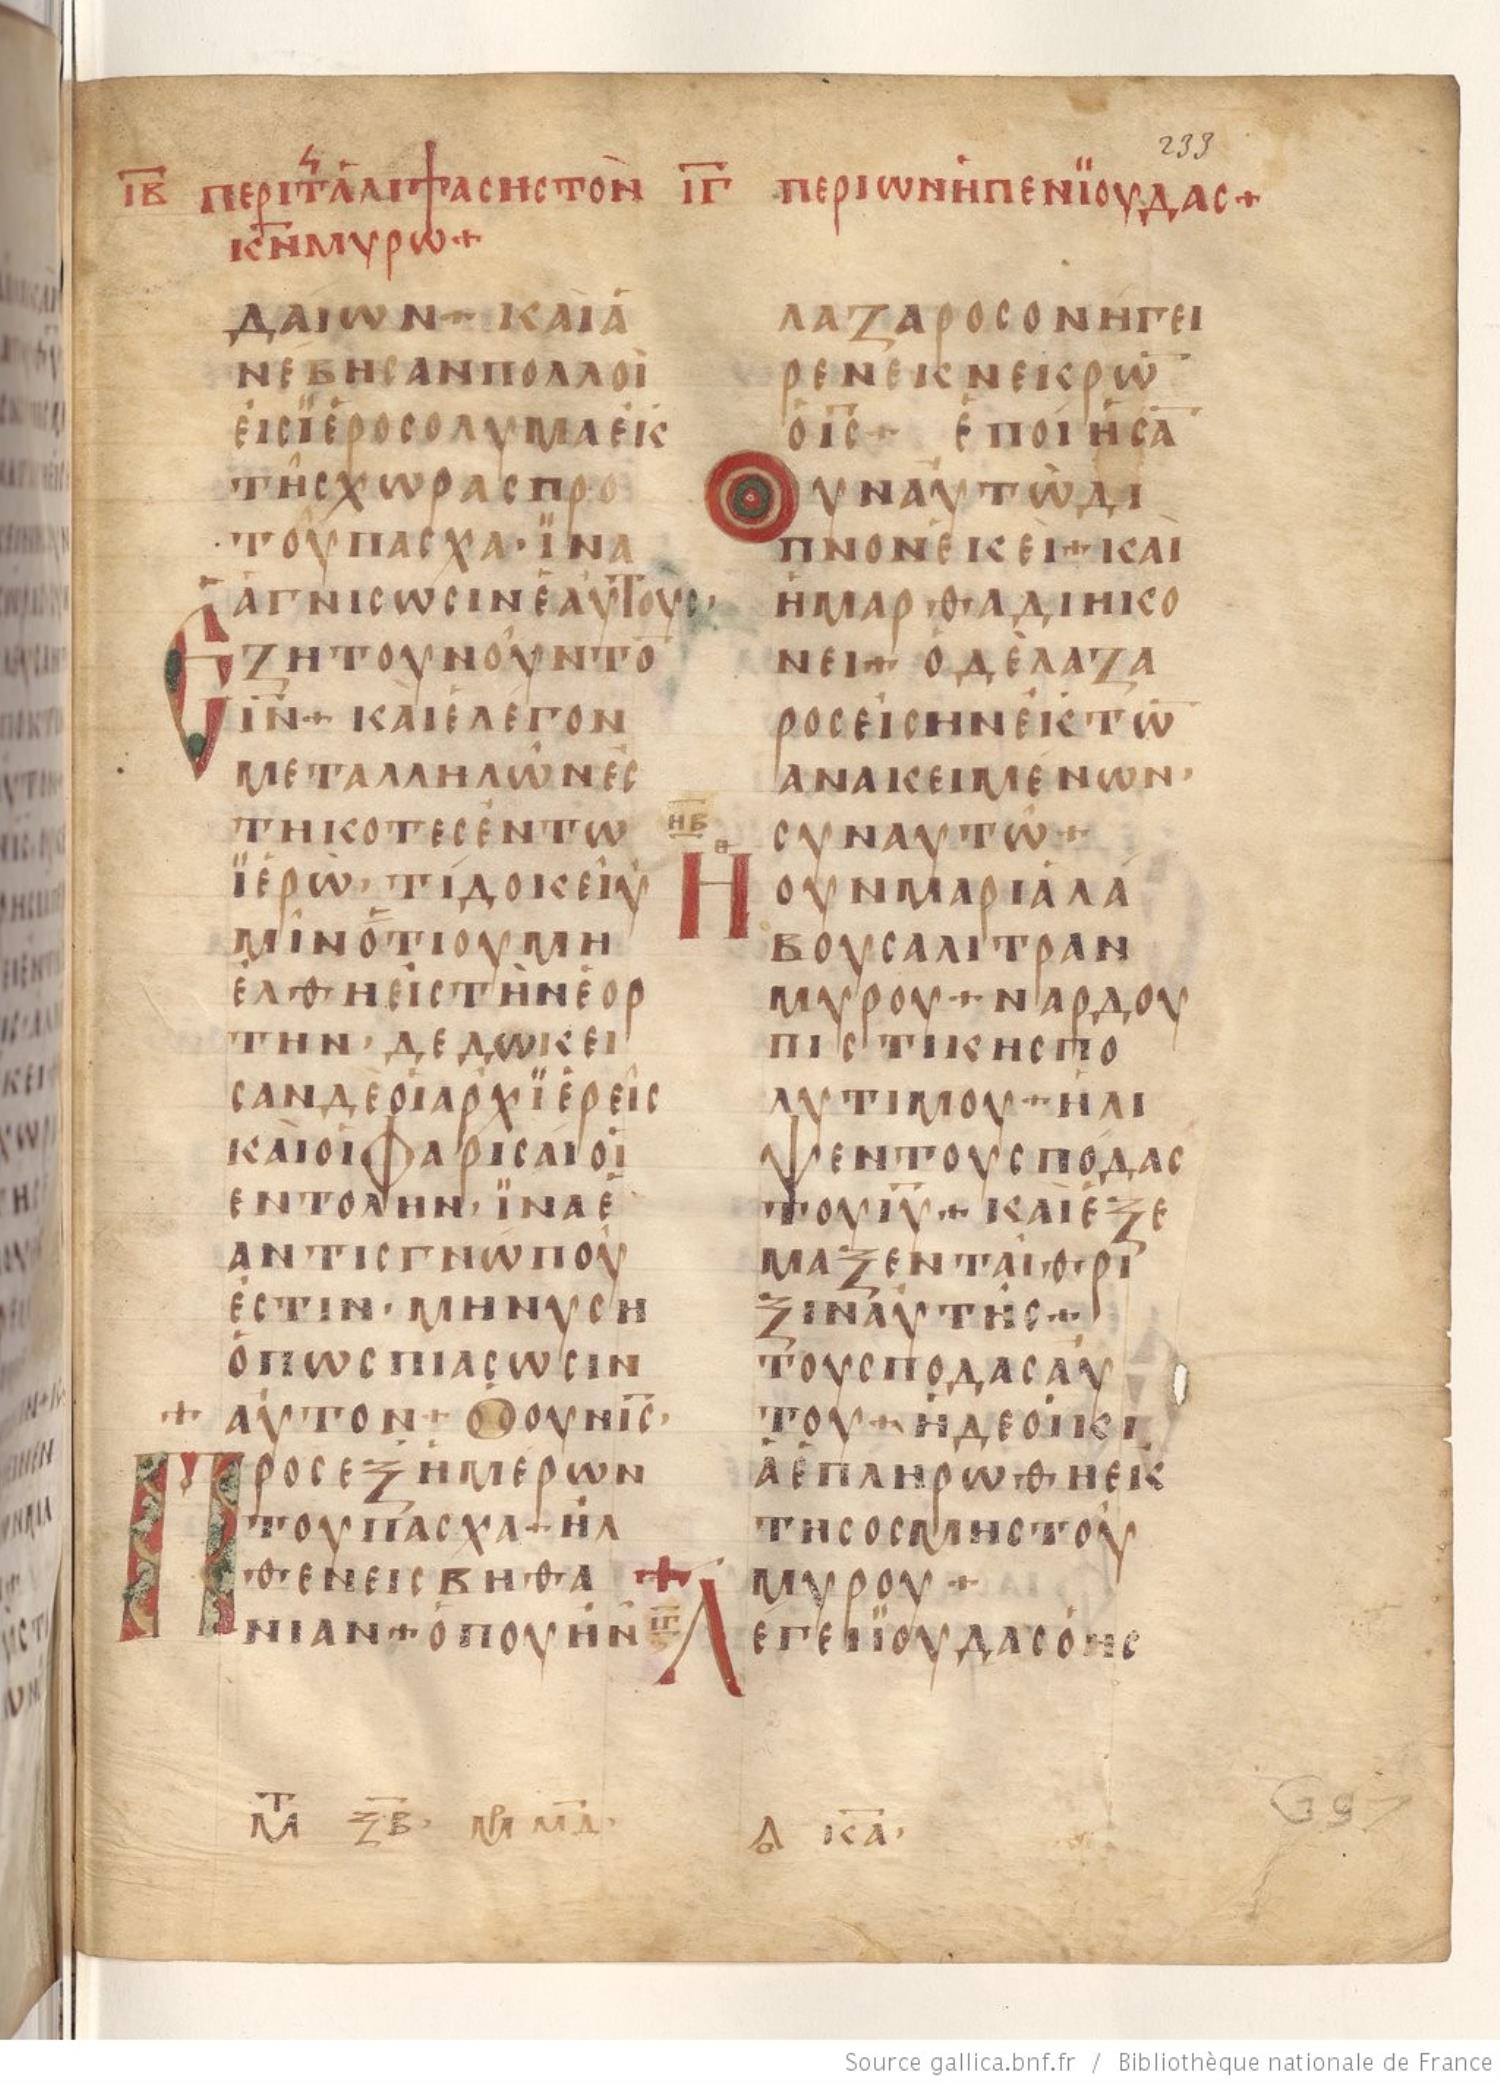 233
ΙΒ ΠΕΡΙ Τ ΑΛΙΨΑΣΗΣ ΤΟΝ
Κ̅Ν̅ ΜΥΡΩ+
ΙΓ ΠΕΡΙ ΩΝ ΗΠΕΝ ΙΟΥΔΑΣ+
ΔΑΙΩΝ+ ΚΑΙ Α
ΝΕΒΗΣΑΝ ΠΟΛΛΟΙ
ΕΙΣ ΙΕΡΟΣΟΛΥΜΑ ΕΚ
ΤΗΣ ΧΩΡΑΣ ΠΡΟ
ΤΟΥ ΠΑΣΧΑ· ΙΝΑ
ΑΓΝΙΣΩΣΙΝ ΕΑΥΤΟΥΣ,
ΕΖΗΤΟΥΝ ΟΥΝ ΤΟ̅
Ι̅Ν̅+ ΚΑΙ ΕΛΕΓΟΝ
ΜΕΤ ΑΛΛΗΛΩΝ ΕΣ
ΤΗΚΟΤΕΣ ΕΝ ΤΩ
ΙΕΡΩ· ΤΙ ΔΟΚΕΙ Υ
ΜΙΝ ΟΤΙ ΟΥ ΜΗ
ΕΛΘΗ ΕΙΣ ΤΗΝ ΕΟΡ
ΤΗΝ· ΔΕΔΩΚΕΙ
ΣΑΝ ΔΕ ΟΙ ΑΡΧΙΕΡΕΙΣ
ΚΑΙ ΟΙ ΦΑΡΙΣΑΙΟΙ
ΕΝΤΟΛΗΝ· ΙΝΑ Ε
ΑΝ ΤΙΣ ΓΝΩ ΠΟΥ
ΕΣΤΙΝ· ΜΗΝΥΣΗ
ΟΠΩΣ ΠΙΑΣΩΣΙΝ
+ ΑΥΤΟΝ+ Ο ΟΥΝ Ι̅Σ̅·
ΠΡΟΣ ΕΞ ΗΜΕΡΩΝ
ΤΟΥ ΠΑΣΧΑ+ ΗΛ
ΘΕΝ ΕΙΣ ΒΗΘΑ
ΝΙΑΝ+ ΟΠΟΥ ΗΝ
ΛΑΖΑΡΟΣ ΟΝ ΗΓΕΙ
ΡΕΝ ΕΚ ΝΕΚΡΩ̅
Ο Ι̅Σ̅+ ΕΠΟΙΗΣΑ̅
ΟΥΝ ΑΥΤΩ ΔΙ
ΠΝΟΝ ΕΚΕΙ+ ΚΑΙ
Η ΜΑΡΘΑ ΔΙΗΚΟ
ΝΕΙ+ Ο ΔΕ ΛΑΖΑ
ΡΟΣ ΕΙΣ ΗΝ ΕΚ ΤΩ̅
ΑΝΑΚΕΙΜΕΝΩΝ·
ΣΥΝ ΑΥΤΩ+
Η ΟΥΝ ΜΑΡΙΑ ΛΑ
ΒΟΥΣΑ ΛΙΤΡΑΝ
ΜΥΡΟΥ+ ΝΑΡΔΟΥ
ΠΙΣΤΙΚΗΣ ΠΟ
ΛΥΤΙΜΟΥ+ ΗΛΙ
ΨΕΝ ΤΟΥΣ ΠΟΔΑΣ
ΤΟΥ Ι̅Υ̅+ ΚΑΙ ΕΞΕ
ΜΑΞΕΝ ΤΑΙ ΘΡΙ
ΞΙΝ ΑΥΤΗΣ+
ΤΟΥΣ ΠΟΔΑΣ ΑΥ
ΤΟΥ+ Η ΔΕ ΟΙΚΙ
Α ΕΠΛΗΡΩΘΗ ΕΚ
ΤΗΣ ΟΣΜΗΣ ΤΟΥ
ΜΥΡΟΥ+
+ ΙΓ ΛΕΓΕΙ ΙΟΥΔΑΣ Ο ΗΣ
ΜΤ ΞΒ· ΜΡ ΜΔ·
Λ ΚΑ·
Source gallica.bnf.fr / Bibliothèque nationale de France